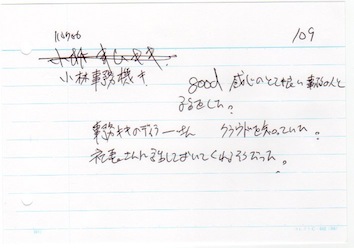 109
小林事務機き
good 感じのとても良い事務の人と
話をした。
事務ききのディラーさん クラウドを知っていた。
社長さんに話しておいてくれるそうだった。